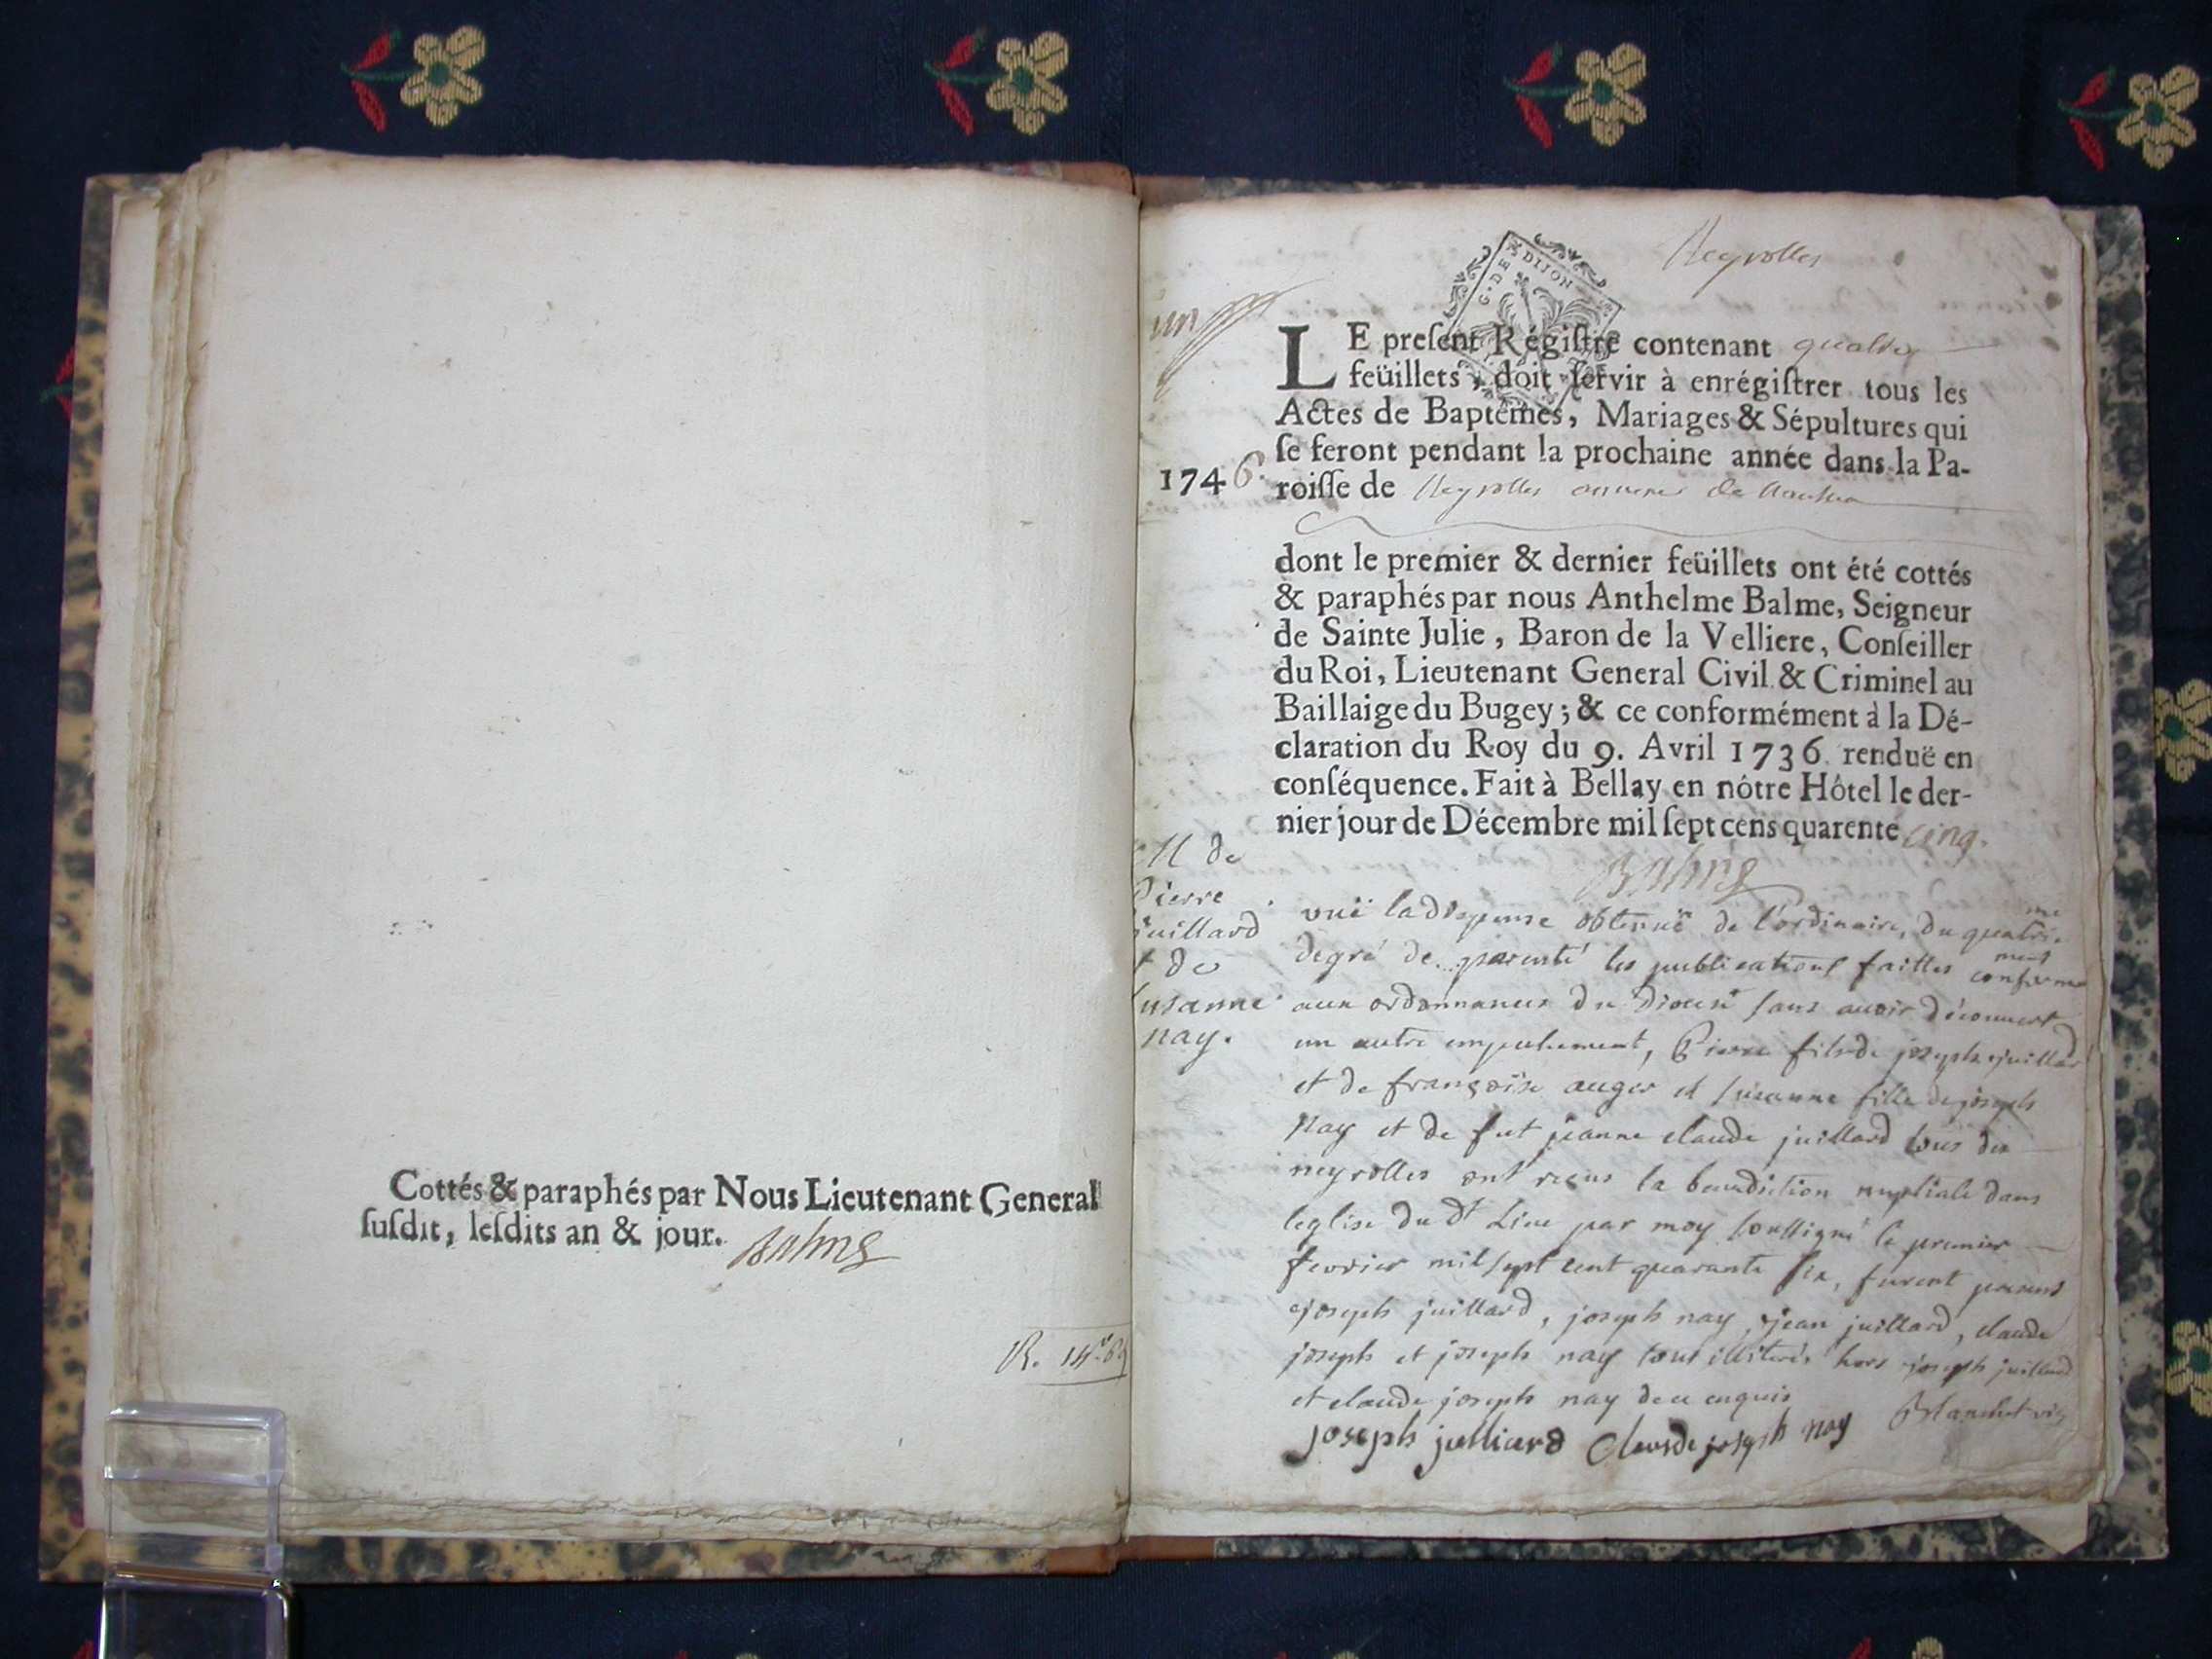 Cottés & paraphés par Nous Lieutenant General
susdit, lesdits an & jour. Balme
R. 14
Neyrolles
G. DE DIJON
un
LE present Régistre contenant quattre
feüillets, doit servir à enrégistrer tous les
Actes de Baptêmes, Mariages & Sépultures qui
se feront pendant la prochaine année dans la Pa-
1746. roisse de Neyrolles annexe de
dont le premier & dernier feüillets ont été cottés
& paraphés par nous Anthelme Balme, Seigneur
de Sainte Julie, Baron de la Velliere, Conseiller
du Roi, Lieutenant General Civil & Criminel au
Baillaige du Bugey; & ce conformément à la Dé-
claration du Roy du 9. Avril 1736. renduë en
conséquence. Fait à Bellay en nôtre Hôtel le der-
nier jour de Décembre mil sept cens quarente cinq.
Balme
M de
Pierre
juillard
et de
susanne
nay.
vuë la dispense obtenuë de l'ordinaire, du quatrieme
degré de parenté les publications faittes conformement
aux ordonnances du Diocese sans avoir découvert
un autre empechement, Pierre fils de joseph juillard
et de françoise auger et susanne fille de joseph
nay et de fut jeanne claude juillard tous des
neyrolles ont reçus la benediction nuptiale dans
l'eglise du dt Lieu par moy soussigné le premier
fevrier mil sept cent quarante six, furent presens
joseph juillard, joseph nay, jean juillard, claude
joseph et joseph nay tous illiterés hors joseph juillard
et claude joseph nay de ce enquis
joseph julliard claude joseph nay Blanchet vic